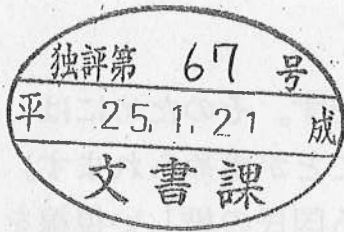 独評第 67 号
平 25.1.21 成
文書課